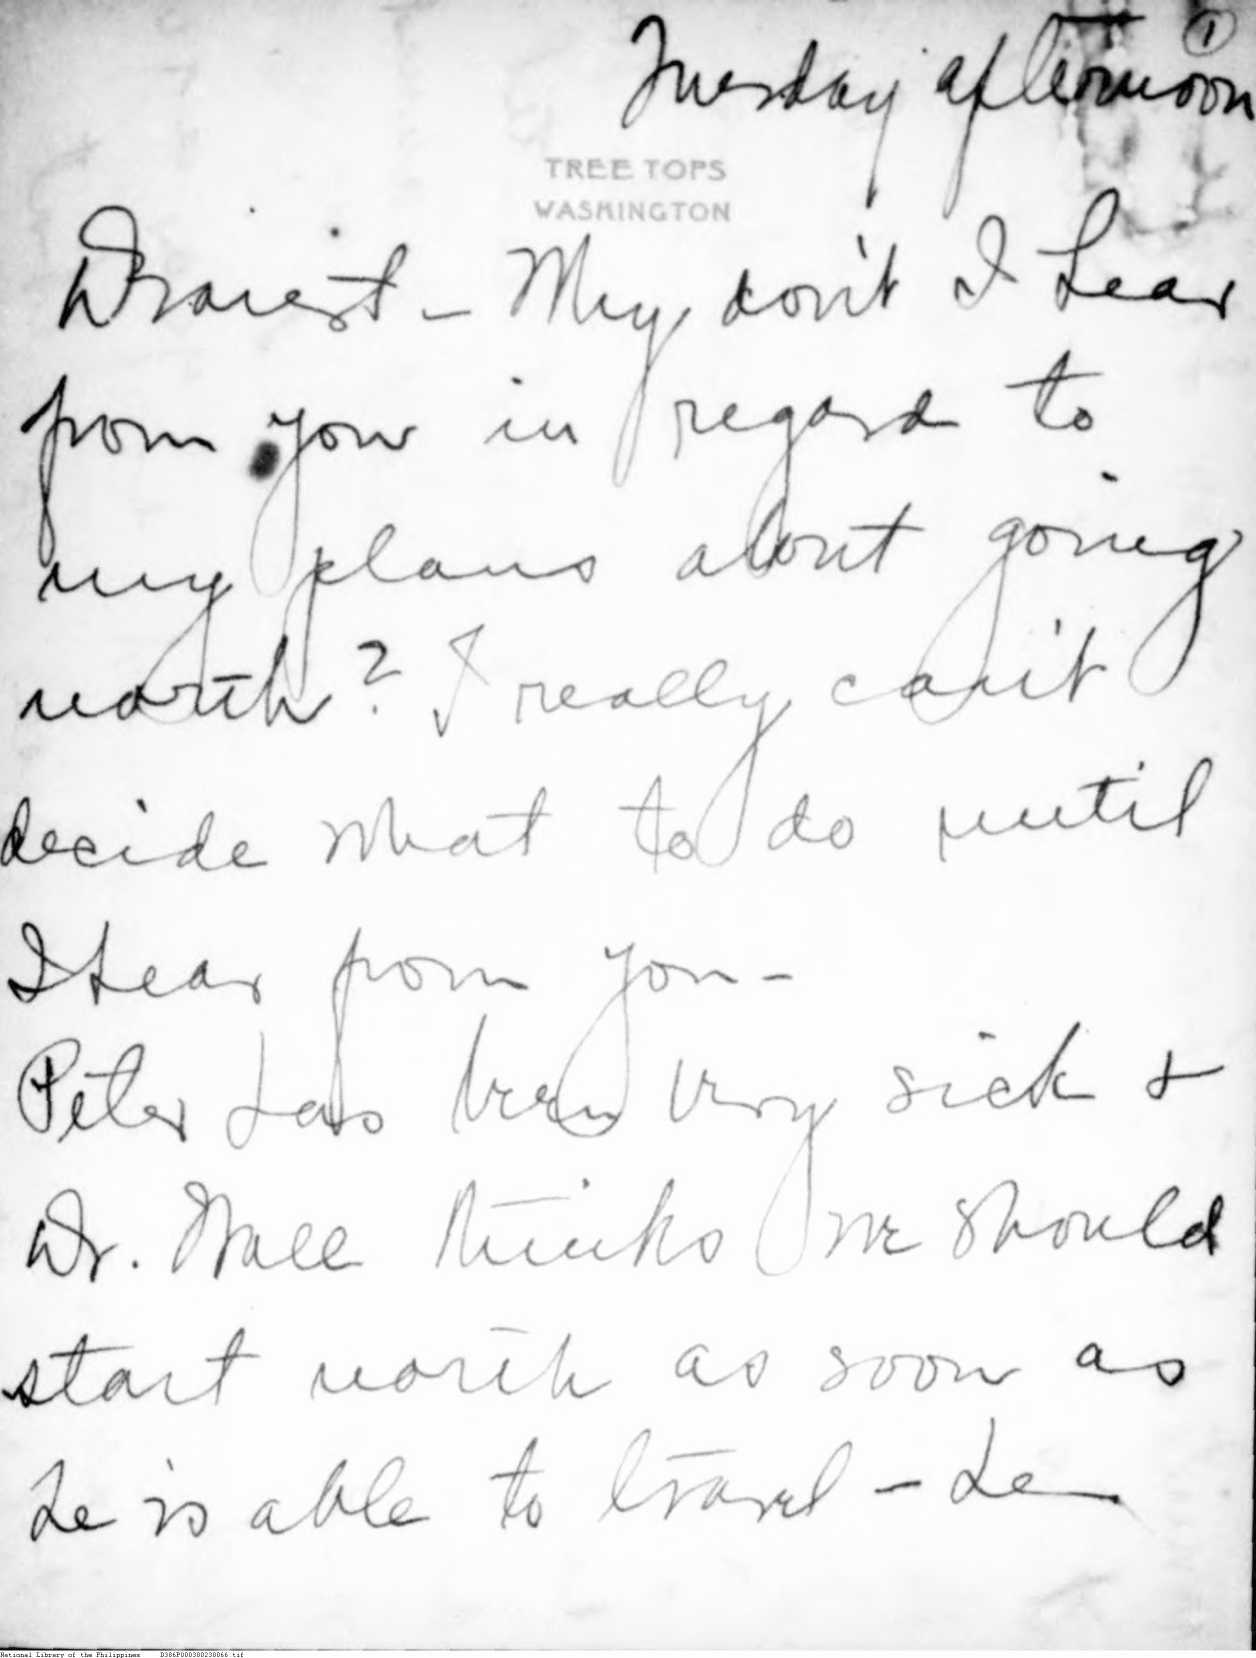 ①
Tuesday afternoon
TREE TOPS
WASHINGTON
Dearest – Why don't I hear
from you in regard to
my plans about going
north? I really can't
decide what to do until
I hear from you –
Peter has been very sick &
Dr. Wall thinks we should
start north as soon as
he is able to travel – he
National Library of the Philippines D386P000380238066.tif